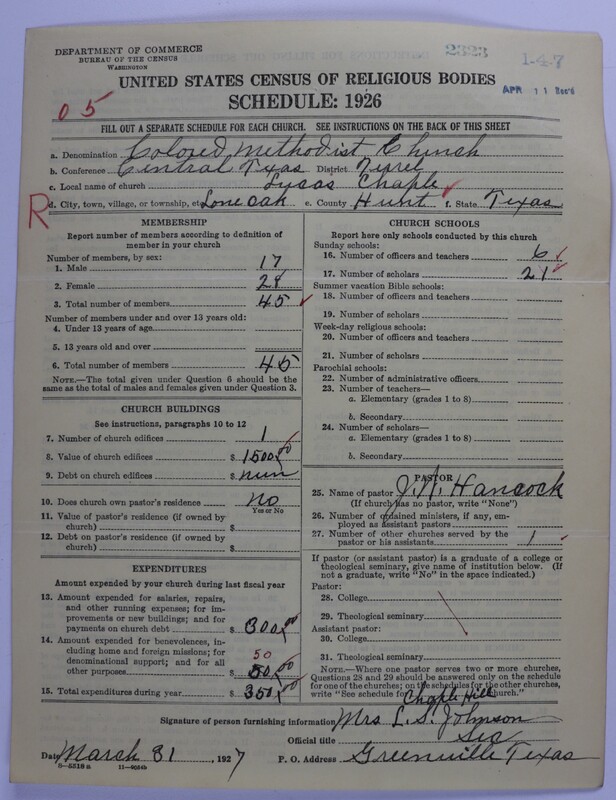 DEPARTMENT OF COMMERCE
BUREAU OF THE CENSUS
WASHINGTON
2323
1-4-7
APR 11 Rec'd
UNITED STATES CENSUS OF RELIGIOUS BODIES
SCHEDULE: 1926
05
FILL OUT A SEPARATE SCHEDULE FOR EACH CHURCH. SEE INSTRUCTIONS ON THE BACK OF THIS SHEET
a. Denomination Colored Methodist Chinch
b. Conference Central Texas District Tyrel
c. Local name of church Lucas Chaple
R d. City, town, village, or township, etc. Lone Oak e. County Hunt f. State Texas
MEMBERSHIP
Report number of members according to definition of member in your church
Number of members, by sex:
1. Male 17
2. Female 28
3. Total number of members 45
Number of members under and over 13 years old:
4. Under 13 years of age
5. 13 years old and over
6. Total number of members 45
NOTE.—The total given under Question 6 should be the same as the total of males and females given under Question 3.
CHURCH BUILDINGS
See instructions, paragraphs 10 to 12
7. Number of church edifices 1
8. Value of church edifices $ 1500.00
9. Debt on church edifices $ nun
10. Does church own pastor's residence no
Yes or No
11. Value of pastor's residence (if owned by church) $
12. Debt on pastor's residence (if owned by church) $
EXPENDITURES
Amount expended by your church during last fiscal year
13. Amount expended for salaries, repairs, and other running expenses; for improvements or new buildings; and for payments on church debt $ 300.00
14. Amount expended for benevolences, including home and foreign missions; for denominational support; and for all other purposes 50 50.00
15. Total expenditures during year $ 350.00
CHURCH SCHOOLS
Report here only schools conducted by this church
Sunday schools:
16. Number of officers and teachers 6
17. Number of scholars 21
Summer vacation Bible schools:
18. Number of officers and teachers
19. Number of scholars
Week-day religious schools:
20. Number of officers and teachers
21. Number of scholars
Parochial schools:
22. Number of administrative officers
23. Number of teachers—
a. Elementary (grades 1 to 8)
b. Secondary
24. Number of scholars—
a. Elementary (grades 1 to 8)
b. Secondary
PASTOR
25. Name of pastor J. A. Hancock
(If church has no pastor, write "None")
26. Number of ordained ministers, if any, employed as assistant pastors
27. Number of other churches served by the pastor or his assistants 1
If pastor (or assistant pastor) is a graduate of a college or theological seminary, give name of institution below. (If not a graduate, write "No" in the space indicated.)
Pastor:
28. College
29. Theological seminary
Assistant pastor:
30. College
31. Theological seminary
NOTE.—Where one pastor serves two or more churches, Questions 28 and 29 should be answered only on the schedule for one of the churches; on the schedules for the other churches, write "See schedule for Chaple Hill church."
Signature of person furnishing information Mrs L. S. Johnson
Official title Sec
Date March 31, 1927 P. O. Address Greenville Texas
8-5518 a 11-9024b